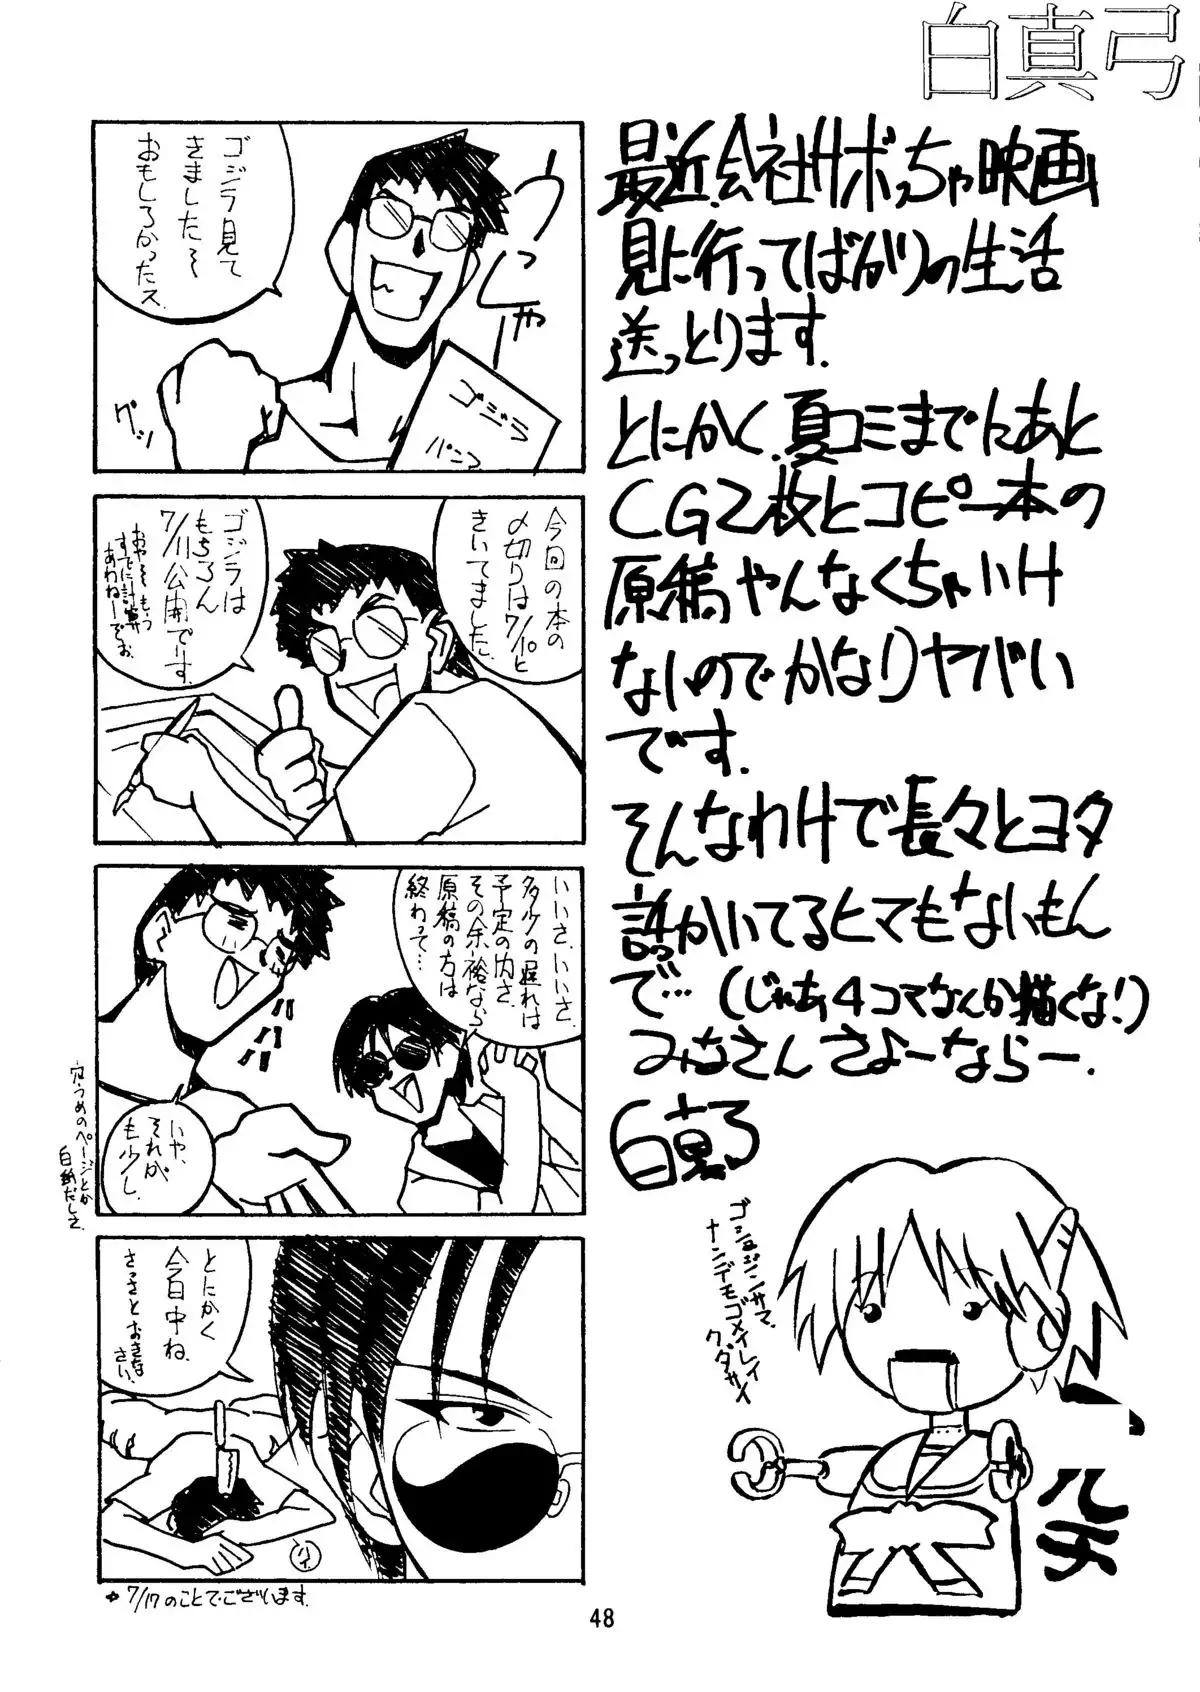 白真弓
最近、会社サボっちゃ映画
見に行ってばかりの生活
送っとります.
とにかく、夏コミまでにあと
CG2枚とコピー本の
原稿やんなくちゃいけ
ないのでかなりヤバい
です.
そんなわけで長々とヨタ
話かいてるヒマもないもん
で…(じゃあ4コマなんか描くな!)
みなさんさよーならー.
白真弓
ゴシュジンサマ、
ナンデモゴメイレイ
クダサイ
マルチ
ゴジラ見て
きました〜
おもしろかったス.
うっしゃー
グッ
ゴジラ
パンフ
今回の本の
〆切りは7/10と
きいてました.
ゴジラは
もちろん
7/11公開です.
おやそもう
すでに計算
あわねーでお
いいさ、いいさ、
多少の遅れは
予定の内さ、
その余裕なら
原稿の方は
終わって…
ハハハ
いや、
それが
も少し.
穴うめのページとか
白紙だしさ.
とにかく
今日中ね.
さっさとおきな
さい.
7/17のことでございます.
48